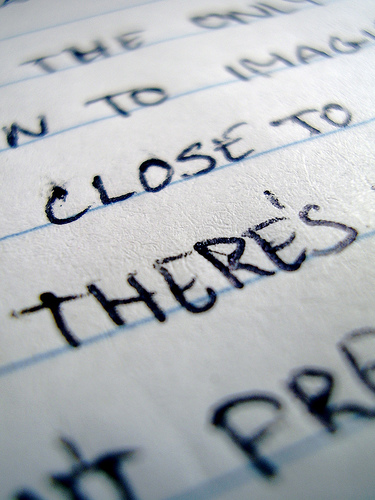 THE ONLY
N TO IMAGI
CLOSE TO
THERE'S
N'T PRE